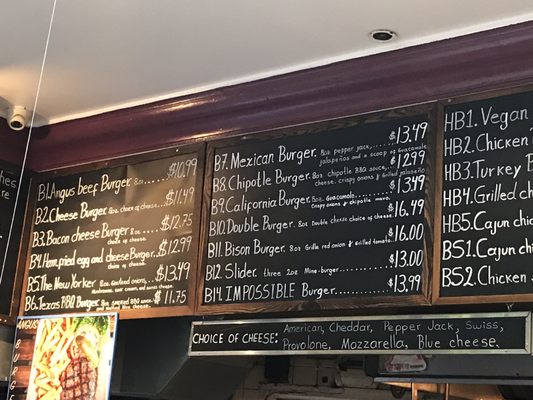 B1. Angus beef Burger. 8oz ..... $10.99
B2. Cheese Burger. 8oz choice of cheese. $11.49
B3. Bacon cheese Burger. 8oz $12.75
choice of cheese.
B4. Ham, fried egg and cheese Burger $12.99
choice of cheese
B5. The New Yorker 8oz $13.49
B6. Texas BBQ Burger. $11.75
B7. Mexican Burger. 8oz pepper jack, $13.49
jalapeños and a scoop of Guacamole
B8. Chipotle Burger. 8oz chipotle BBQ sauce, $12.99
cheese, crispy onions
B9. California Burger. 8oz Guacamole, $13.49
Crispy onions & chipotle mayo.
B10. Double Burger. 8oz Double cheese choice of cheese. $16.49
B11. Bison Burger. 8oz Grille red onion & Grilled tomato. $16.00
B12. Slider. three 2oz Mine-burger $13.00
B14. IMPOSSIBLE Burger. $13.99
HB1. Vegan
HB2. Chicken
HB3. Turkey B
HB4. Grilled ch
HB5. Cajun chi
BS1. Cajun ch
BS2. Chicken
CHOICE OF CHEESE: American, Cheddar, Pepper Jack, Swiss,
Provolone, Mozzarella, Blue cheese.
ANGUS